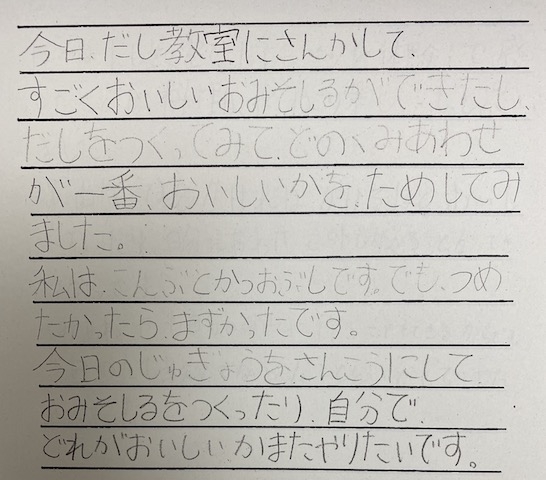 今日、だし教室にさんかして、
すごくおいしいおみそしるができたし、
だしをつくってみて、どのくみあわせ
が一番、おいしいかを、ためしてみ
ました。
私は、こんぶとかつおぶしです。でも、つめ
たかったら、まずかったです。
今日のじゅぎょうを、さんこうにして、
おみそしるをつくったり、自分で、
どれがおいしいかまたやりたいです。